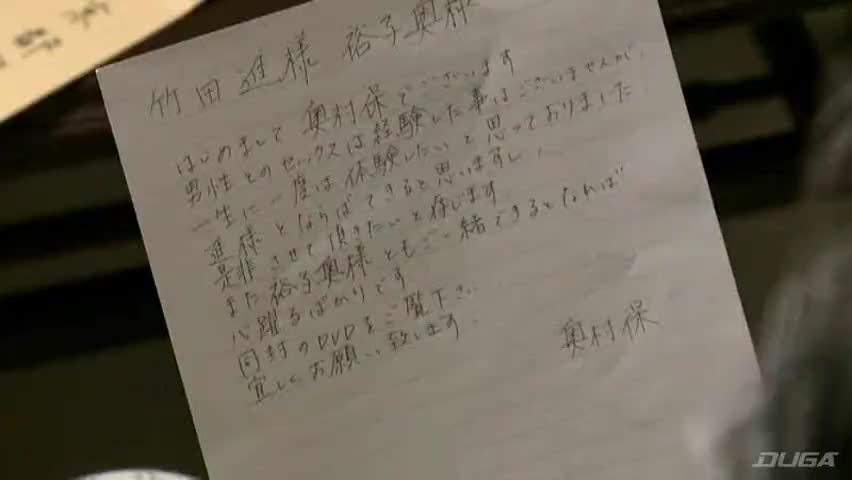 竹田進様 裕子奥様
はじめまして 奥村保でございます
男性とのセックスは経験した事はございませんが、
一生に一度は体験したいと思っておりました。
進様とならばできると思いますし、
是非させて頂きたいと存じます
また裕子奥様ともご一緒できるとなれば
心躍るばかりです
同封のDVDをご覧下さい
宜しくお願い致します。
奥村保
DUGA